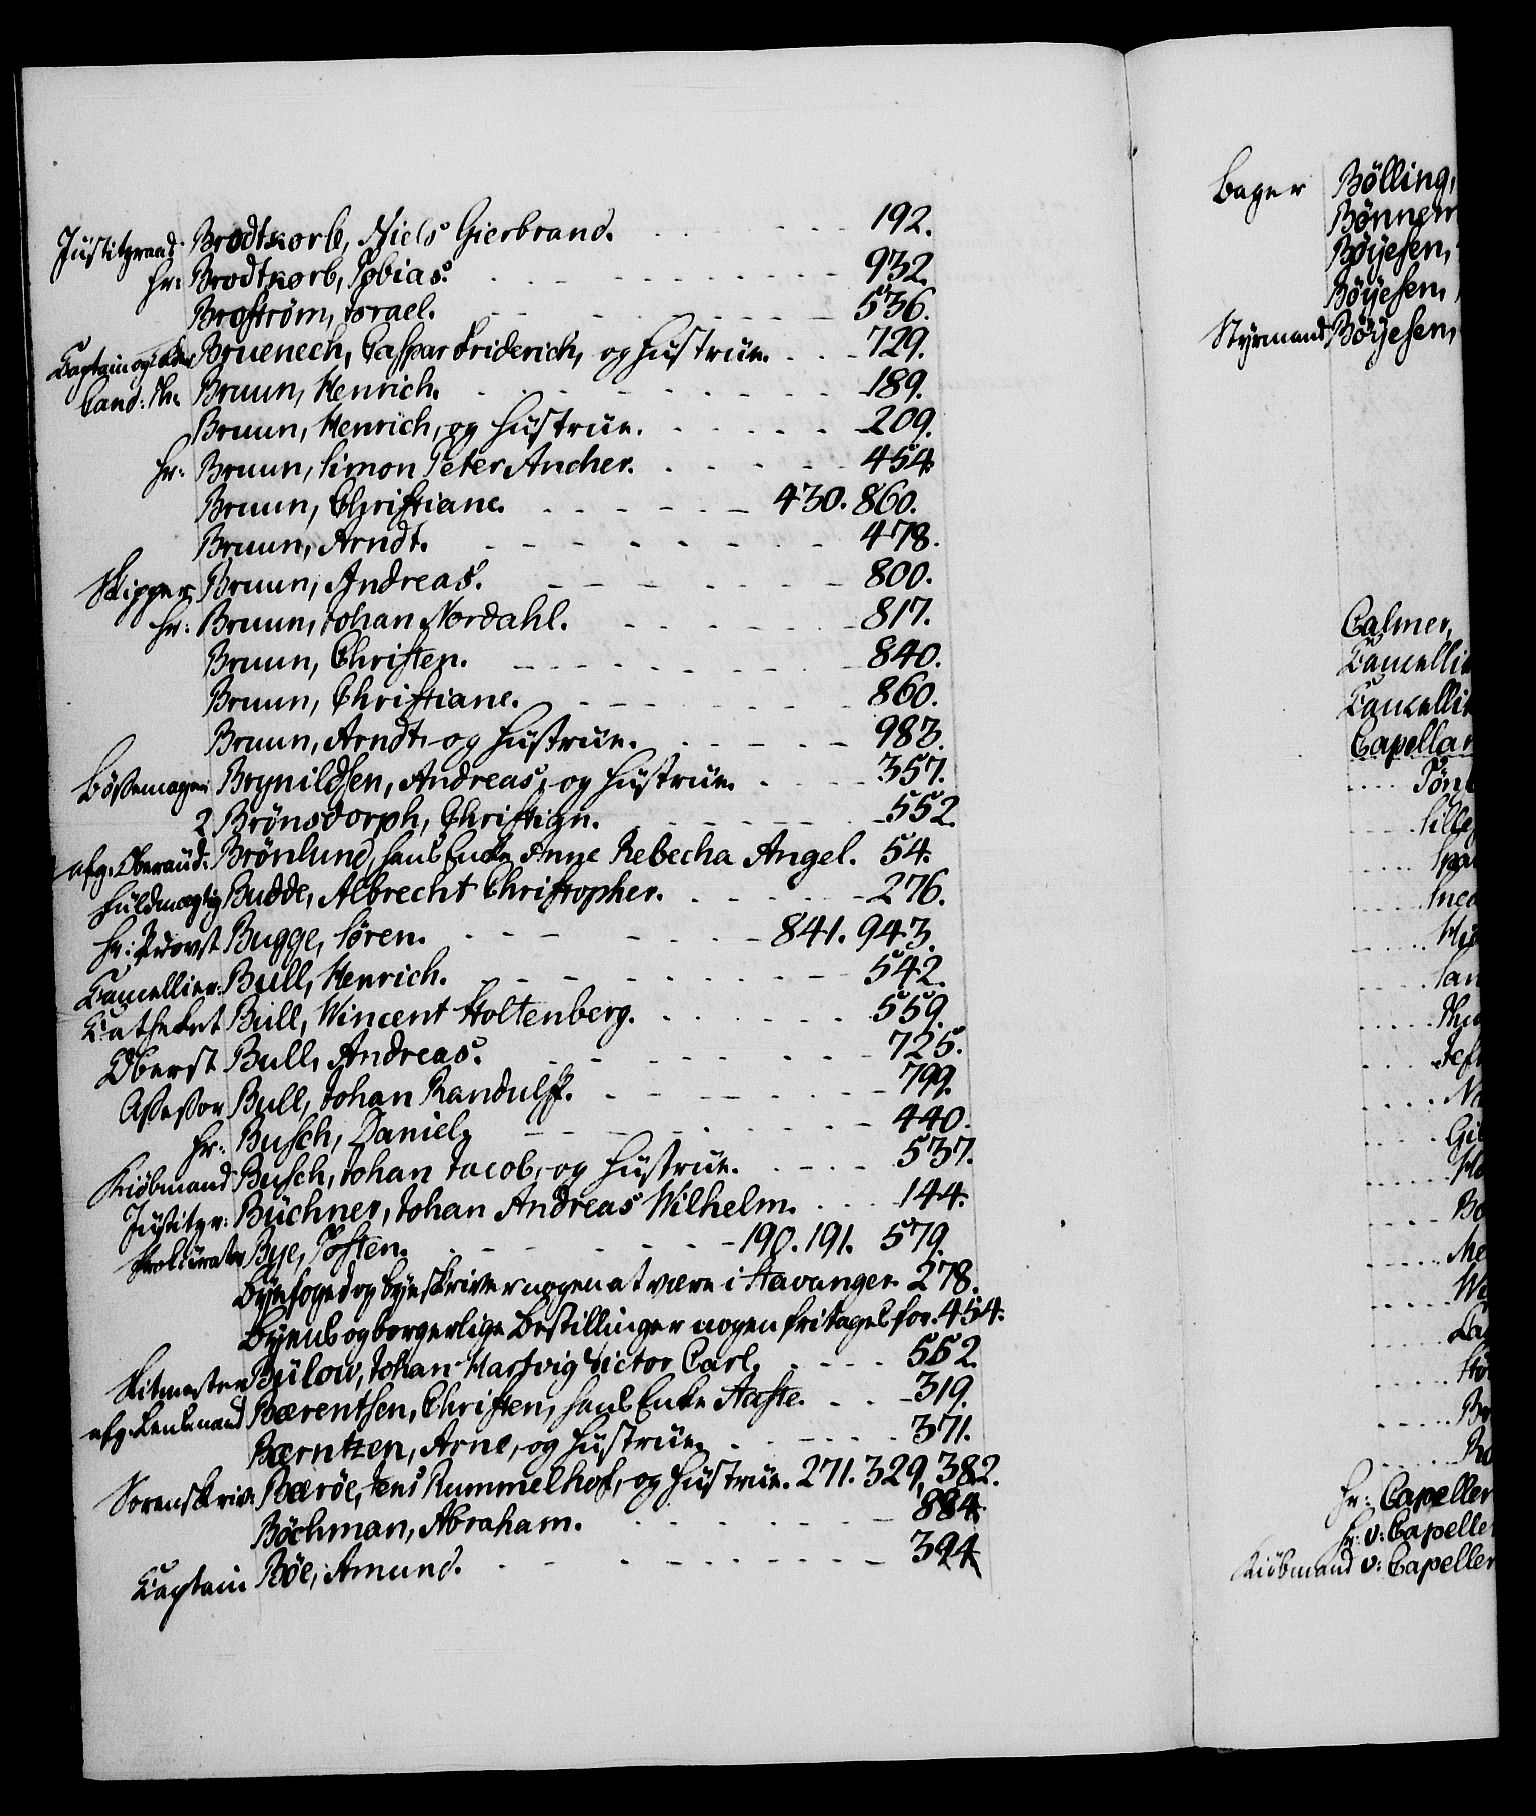 Justitzraad Brodtkorb, Niels Gierbrand. 192.
Hr: Brodtkorb, Tobias. 932.
Broström, Israel. 536.
Captain og Bruenech, Caspar Friderich, og Hustrue. 729.
Cand: Th. Bruun, Henrich. 189.
Bruun, Henrich, og Hustrue. 209.
Hr: Bruun, Simon Peter Ancher. 454.
Bruun, Christiane. 430. 860.
Bruun, Arndt. 478.
Skipper Bruun, Andreas. 800.
Hr: Bruun, Johan Nordahl. 817.
Bruun, Christen. 840.
Bruun, Christiane. 860.
Bruun, Arndt, og Hustrue. 983.
Bössemager Brynildsen, Andreas, og Hustrue. 357.
2 Brönsdorph, Christian. 552.
afg. Oberaud: Brönlund, hans Enke Anne Rebecha Angel. 54.
Fuldmægtig Budde, Albrecht Christopher. 276.
Hr: Provst Bugge, Sören. 841. 943.
Cancellier: Bull, Henrich. 542.
Catheket Bull, Wincent Stoltenberg. 559.
Oberst Bull, Andreas. 725.
Assessor Bull, Johan Randulff. 799.
Hr: Busch, Daniel. 440.
Kiöbmand Busch, Johan Jacob, og Hustrue. 537.
Justitzr: Büchner, Johan Andreas Wilhelm. 144.
Procurator Bye, Tosten. 190. 191. 579.
Byefoged og Byeskriver nogen at være i Stavanger. 278.
Byens og borgerlige Bestillinger nogen fritages for. 454.
Bülow, Johan Hartvig Victor Carl. 552.
afg. Lensmand Bærentsen, Christen, hans Enke Aaste. 319.
Bærntzen, Arne, og Hustrue. 371.
Sorenskriv: Bæröe, Jens Rummelhof, og Hustrue. 271. 329, 382.
Böchman, Abraham. 884.
Captain Böe, Amund. 394.
Bager Bölling,
Bönner
Böyesen,
Böyesen,
Styrmand Böyesen,
Calmer,
Cancellie
Cancellie
Capellan
Hr: Capeller
Hr. v: Capelle
Kiöbmand v: Capeller